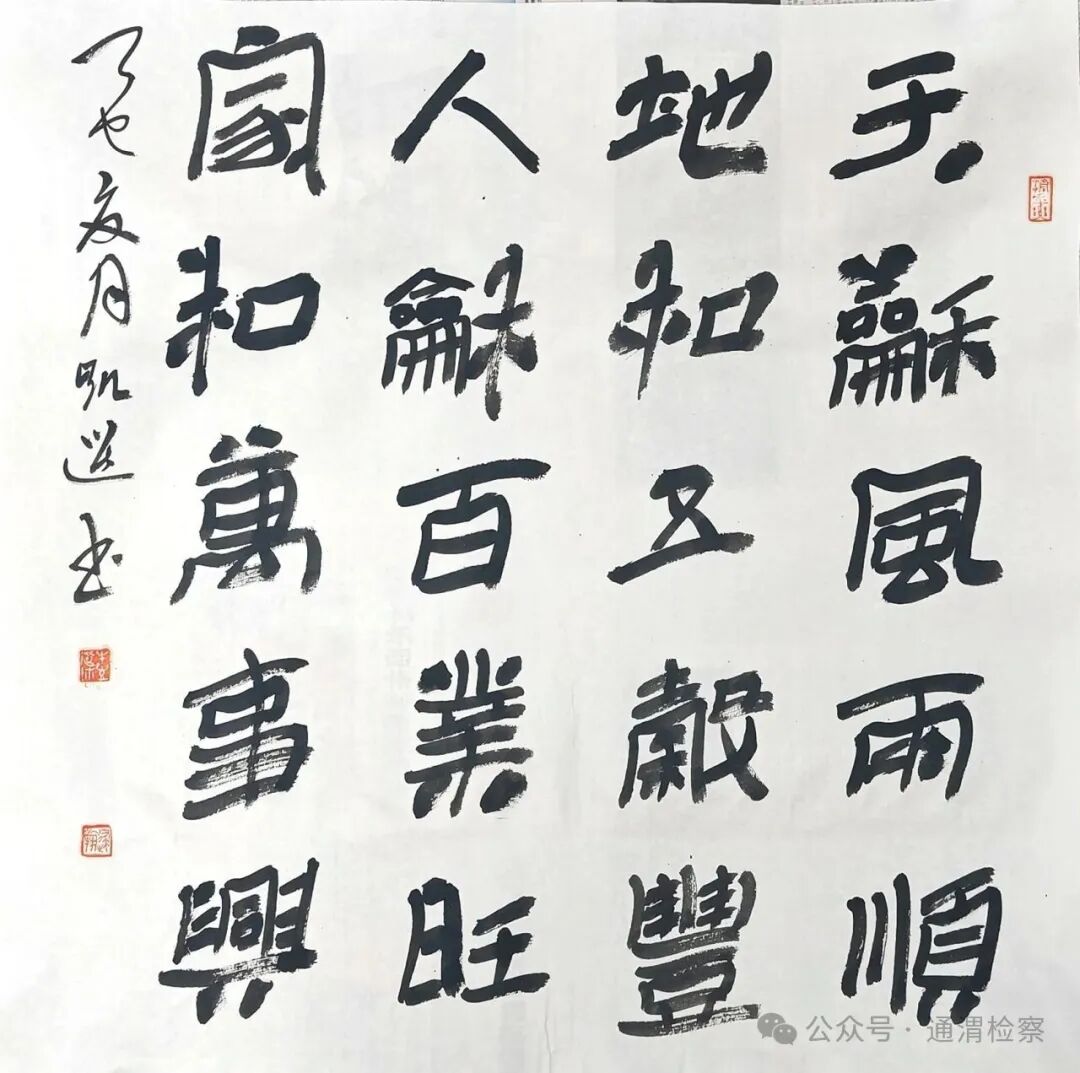 天龢風雨順
地和五穀豐
人龢百業旺
家和萬事興
乙巳夏月 書
公众号·通渭检察